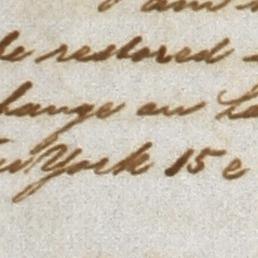 I am
be restored
change on
New York 15 c